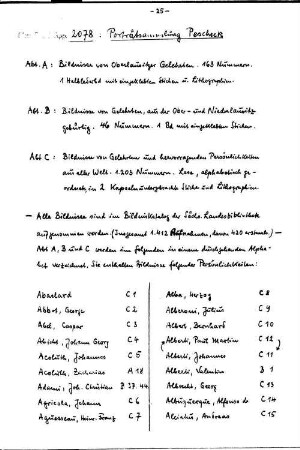 - 25 -
2078 : Porträtsammlung Pescheck
Abt. A : Bildnisse von Oberlausitzer Gelehrten. 163 Nummern.
1 Halblederbd mit eingeklebten Stichen u. Lithographien.
Abt. B : Bildnisse von Gelehrten, aus der Ober- und Niederlausitz
gebürtig. 46 Nummern. 1 Bd mit eingeklebten Stichen.
Abt C : Bildnisse von Gelehrten und hervorragenden Persönlichkeiten
aus aller Welt. 1.203 Nummern. Lose, alphabetisch ge-
ordnet, in 2 Kapseln untergebrachte Stiche und Lithographien.
- Alle Bildnisse sind im Bildkatalog der Sächs. Landesbibliothek
aufgenommen worden. (Insgesamt 1.412 Aufnahmen, davon 430 erstmals) -
Abt A, B und C werden im folgenden in einem durchgehenden Alpha-
bet verzeichnet. Sie enthalten Bildnisse folgender Persönlichkeiten:
Abaelard C 1
Abbot, George C 2
Abel, Caspar C 3
Abicht, Johann Georg C 4
Acoluth, Johannes C 5
Acoluth, Zacharias A 18
Adami, Joh. Christian B 37. 44
Agricola, Johann C 6
Aguesseau, Henri-Franç C 7
Alba, Herzog C 8
Alberoni, Julius C 9
Albert, Bernhard C 10
Alberti, Paul Martin C 12
Alberti, Johannes C 11
Alberti, Valentin B 1
Albrecht, Georg C 13
Albuquerque, Alfonso de C 14
Alciatus, Andreas C 15